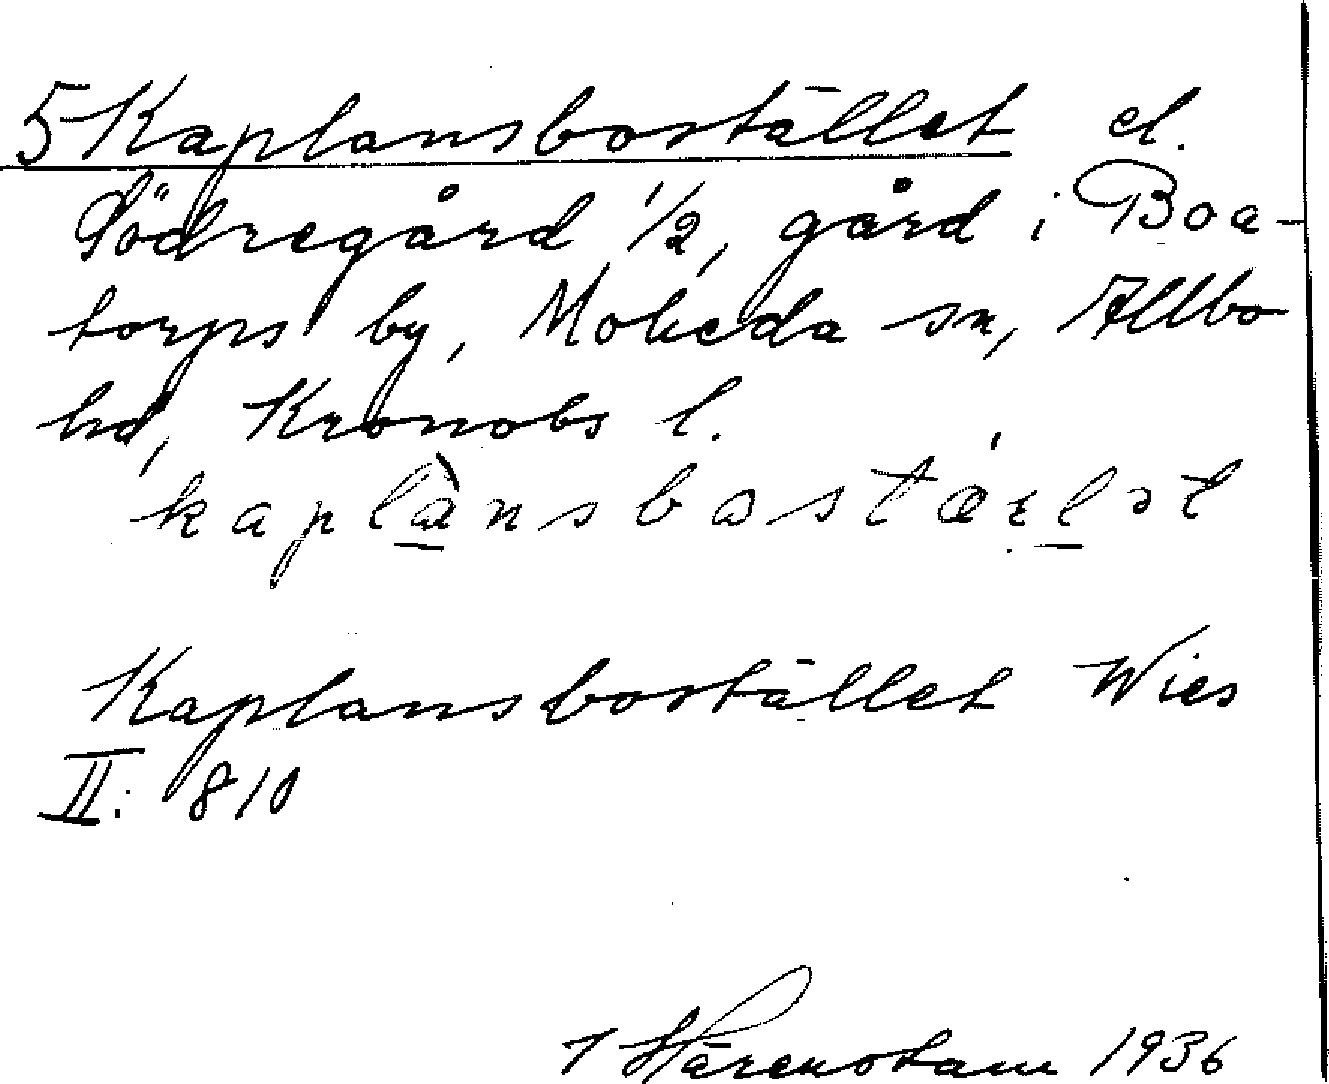 5 Kaplansbostället el.
Södregård 1/2, gård i Boa-
torps by, Moheda sn, Allbo
hd, Kronobs l.
Kaplansbostället Wies
II: 810
Härenstam 1936